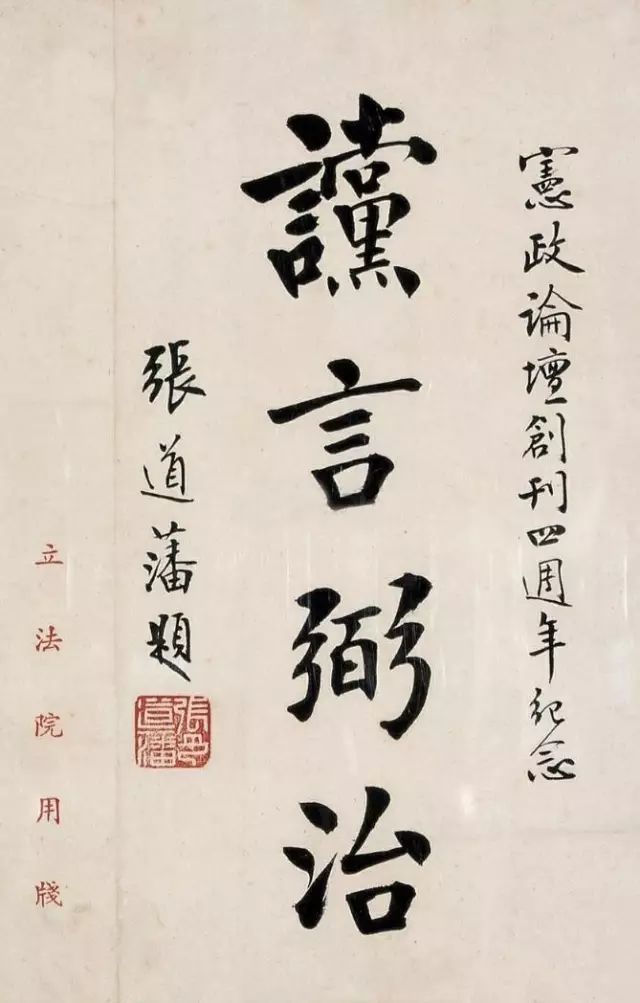 憲政論壇創刊四週年紀念
讜言弼治
張道藩題
張道藩
立法院用牋